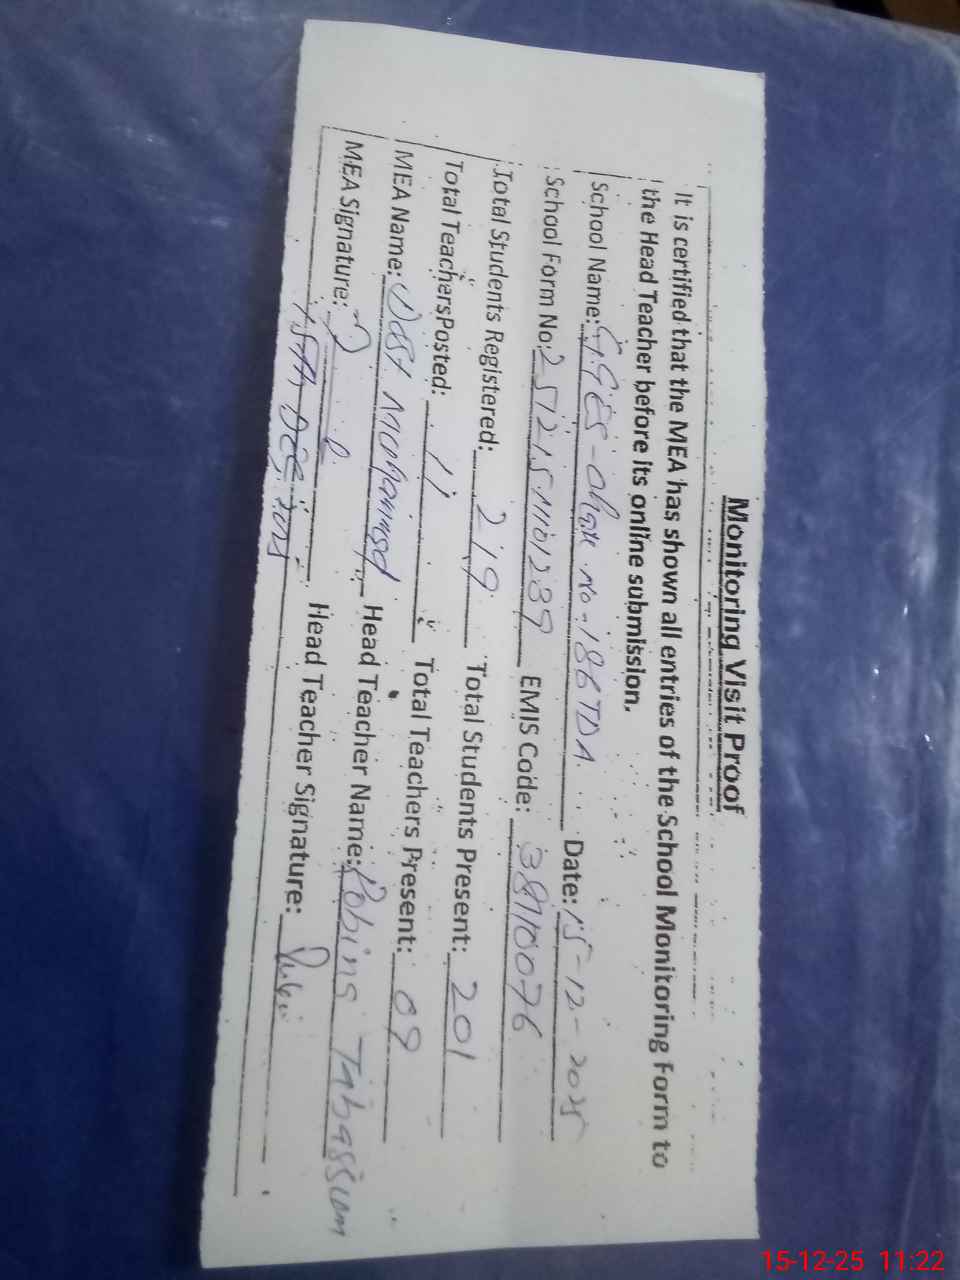 Monitoring Visit Proof
It is certified that the MEA has shown all entries of the School Monitoring Form to
the Head Teacher before its online submission.
School Name: G.GES-Chak No-186TDA. Date: 15-12-2025
School Form No: EMIS Code: 38710076
Total Students Registered: 219 Total Students Present: 201
Total TeachersPosted: 11 Total Teachers Present: 09
MEA Name: Mohammad Head Teacher Name: Robina Tabassum
MEA Signature: Head Teacher Signature: Rubi
15th, Dec, 2025
15-12-25 11:22